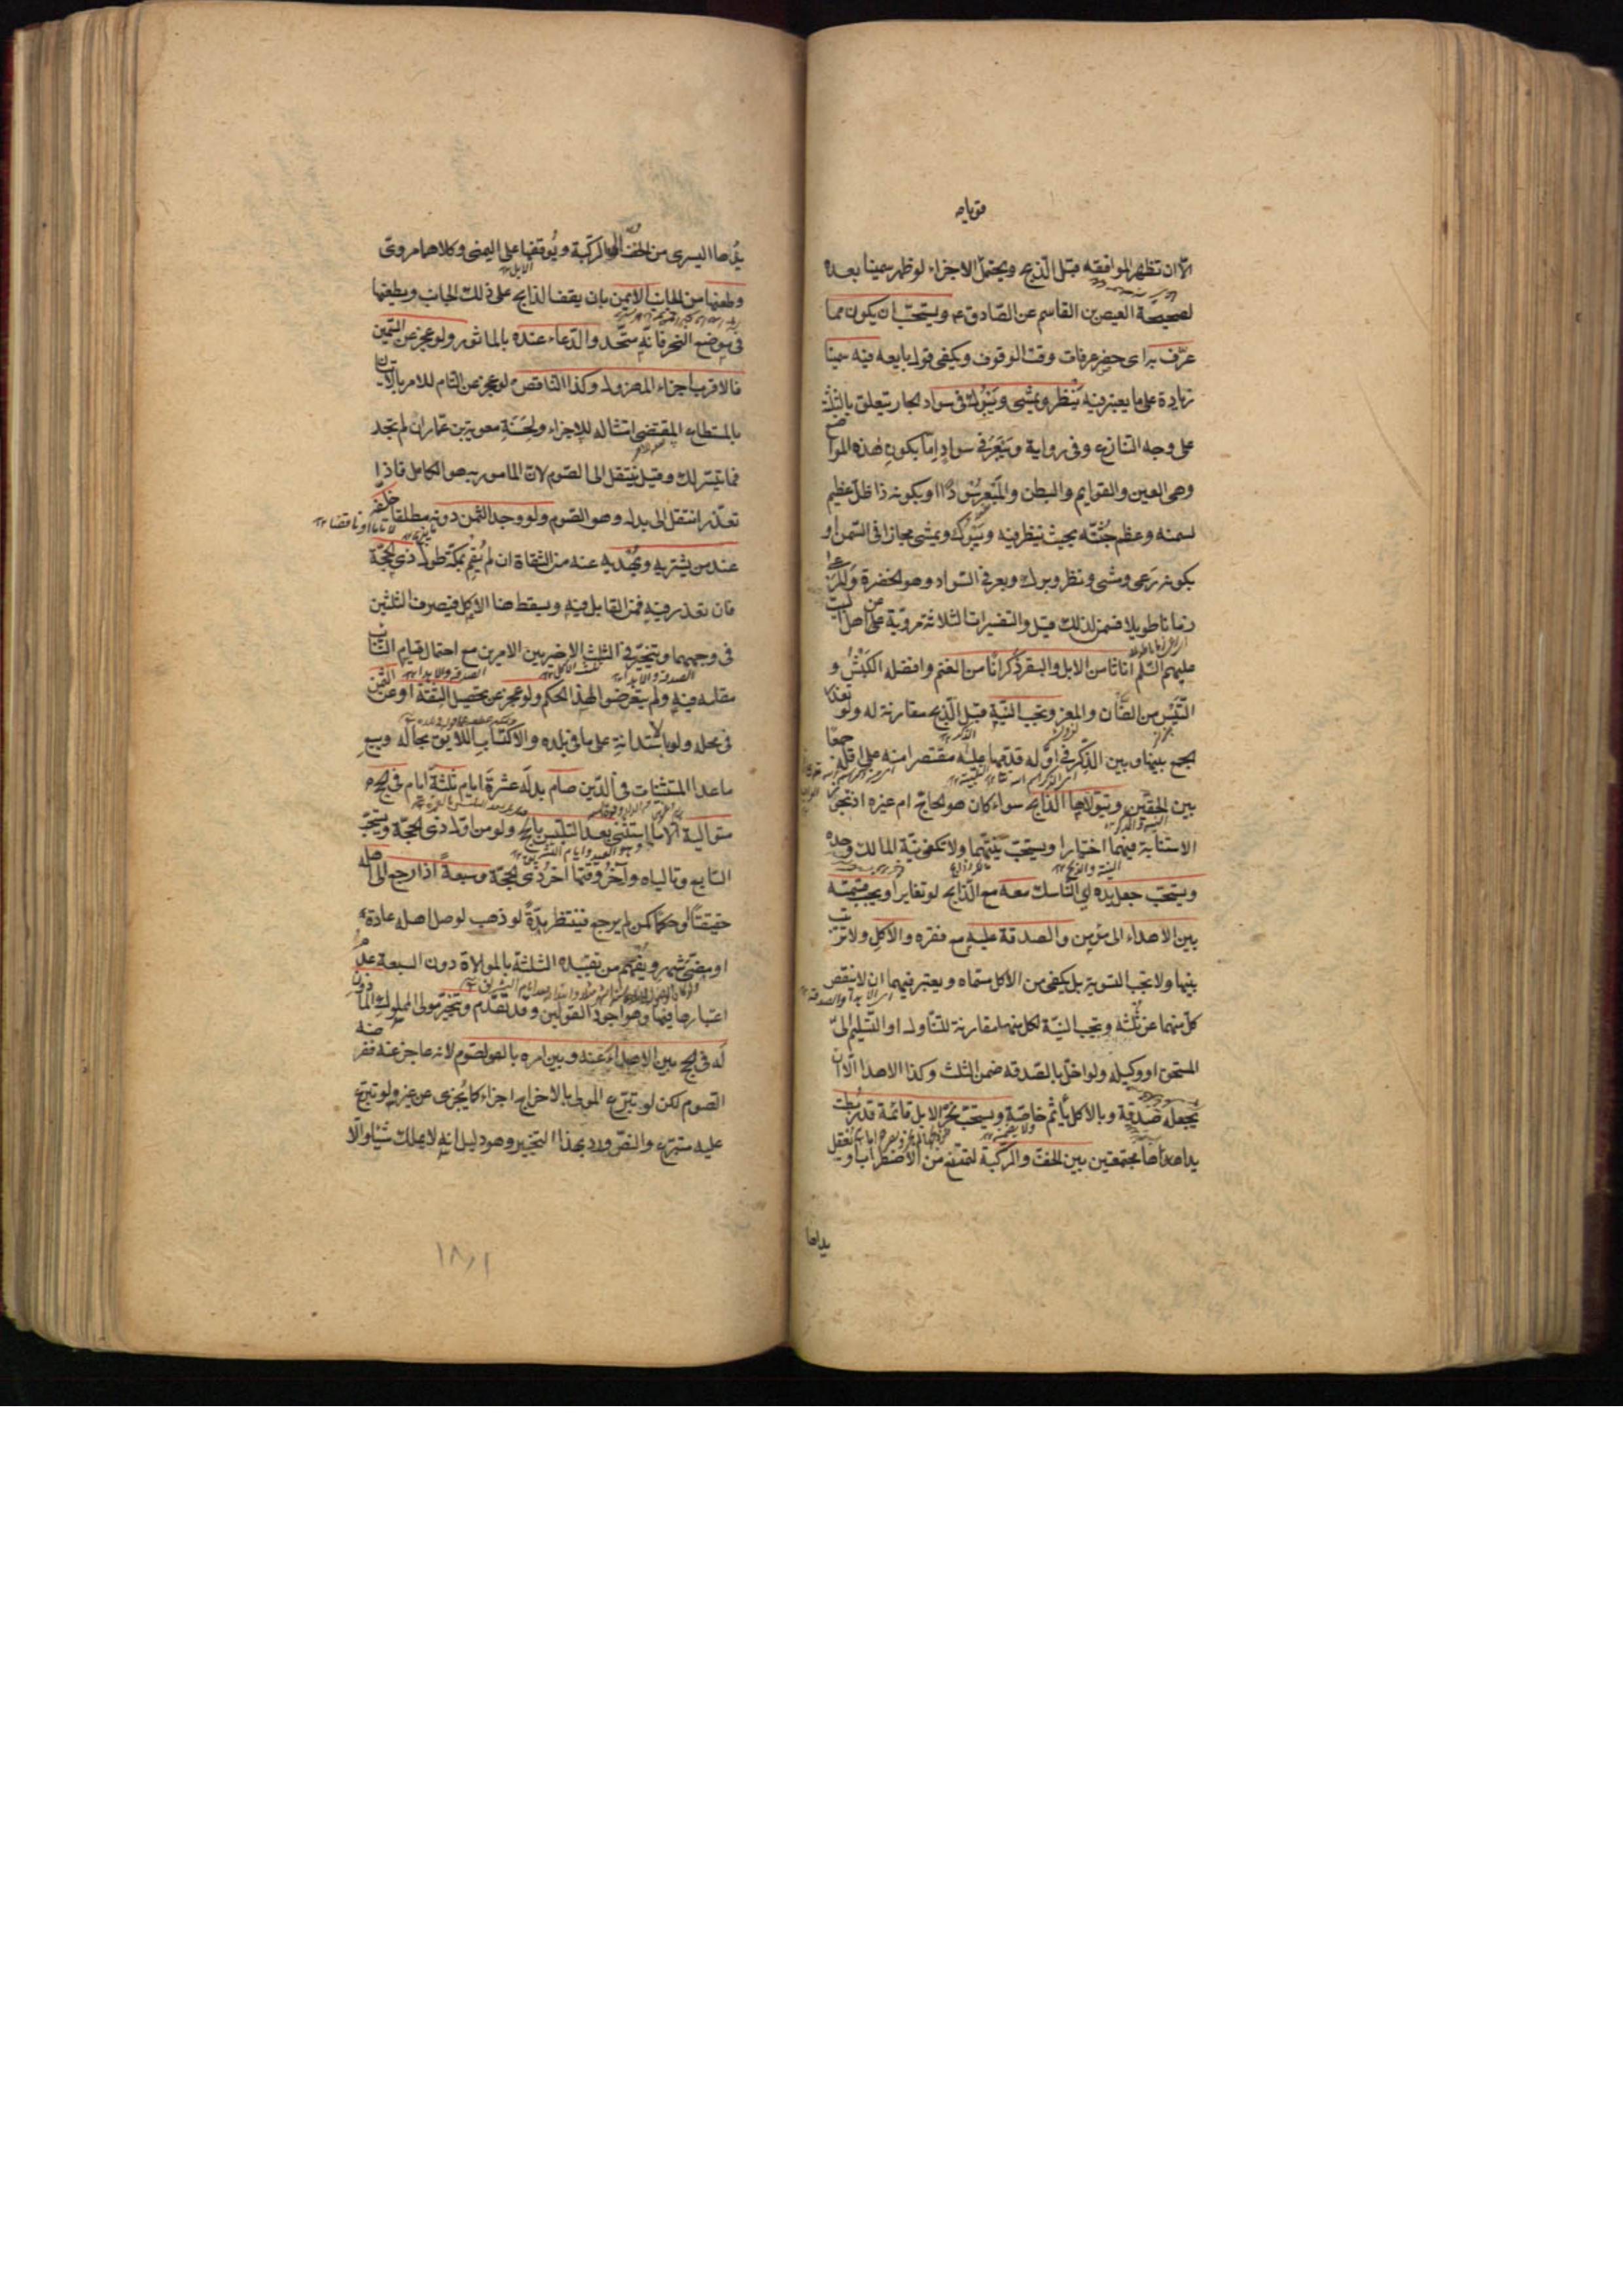 الا ان تظهر الموافقه قبل الذبح ويحتمل الاجزاء لو ظهر سمينا بعده
لصحيحة العيص بن القاسم عن الصادق ع ويستحب ان يكون مما
عرف به اى حضر عرفات وقت الوقوف ويكفى قول بايعه فيه سمينا
زيادة على ما يعتبر فيه ينظر ويمشى ويبرك فى سواد الجار يتعلق بالثلثة
على وجه التنازع وفى رواية ويبعر فى سواد اما بكون هذه المواضع
وهى العين والقوايم والبطن والمبعر سودا او بكونه ذا ظل عظيم
لسمنه وعظم جثته بحيث ينظر فيه ويبرك ويمشى مجازا فى السمن او
بكونه رعى ومشى ونظر وبرك وبعر فى السواد وهو الخضرة والمرعى
زمانا طويلا فسمن لذلك قيل والتفسيرات الثلاثة مروية عن اهل البيت
عليهم السلم اناثا من الابل والبقر ذكرانا من الغنم وافضله الكبش و
التيس من الضأن والمعز وتجب النية قبل الذبح مقارنة له ولو تعذر
الجمع بينها وبين الذكر فى اوله قدمها عليه مقتصرا منه على اقله جمعا
بين الحقين ويتولاها الذابح سواء كان هو الحاج ام غيره اذ يجوز
الاستنابة فيهما اختيارا ويستحب نيتهما ولا تكفى نية المالك وحده
ويستحب جعل يده اى الناسك معه مع الذابح لو تغاير او يجب قسمته
بين الاهداء الى مؤمن والصدقة عليه مع فقره والاكل ولا ترتيب
بينها ولا تجب التسوية بل يكفى من الاكل مسماه ويعتبر فيهما ان لا ينقص
كل منهما عن ثلثه وتجب النية لكل منها مقارنة للتناول او التسليم الى
المستحق او وكيله ولو اخل بالصدقه ضمن الثلث وكذا الاهدا الا ان
يجعله صدقة وبالاكل يأثم خاصة ويستحب نحر الابل قائمة قد ربطت
يداها مجتمعتين بين الخف والركبة لتمتنع من الاضطراب او تعقل
يداها
يدها اليسرى من الخف الى الركبة ويوقفها على اليمنى وكلاهما مروى
وطعنها من الجانب الايمن بان يقف الذابح على ذلك الجانب ويطعنها
فى موضع النحر فانه متحد والدعاء عنده بالماثور ولو عجز عن السمين
فالاقرب اجزاء المهزول وكذا الناقص لو عجز عن التام للامر بالاتيان
بالمستطاع المقتضى امتثاله للاجزاء ولحسنة معوية بن عمار ان لم تجد
فما تيسر لك وقيل ينتقل الى الصوم لان المامور به هو الكامل فاذا
تعذر انتقل الى بدله وهو الصوم ولو وجد الثمن دونه مطلقا خلفه
عند من يشتريه ويهديه عنه من الثقاة ان لم يقم بمكة طول ذى الحجة
فان تعذر فيه فمن القابل فيه ويسقط هنا الاكل فيصرف الثلثين
فى وجههما ويتخير فى الثلث الاخير بين الامرين مع احتمال قيام النائب
مقامه فيه ولم يتعرضوا لهذا الحكم ولو عجز عن تحصيل الثقة او عن الثمن
فى محله ولو بالاستدانة على ما فى بلده والاكتساب اللايق بحاله وبيع
ماعدا المستثنيات فى الدين صام بدله عشرة ايام ثلثة ايام فى الحج
متوالية الا ما استثنى بعد التلبس بالحج ولو من اول ذى الحجة ويستحب
السابع وتالياه وآخر وقتها اخر ذى الحجة وسبعة اذا رجع الى اهله
حقيقتا او حكما كمن لم يرجع فينتظر مدة لو ذهب لوصل اهله عادة
او مضى شهر ويفهم من تقييده الثلثة بالموالاة دون السبعة عدم
اعتبارها فيها وهو اجود القولين وقد تقدم ويتخير مولى المملوك الماذون
له فى الحج بين الاهداء عنه وبين امره بالصوم لانه عاجز عنه ففرضه
الصوم لكن لو تبرع المولى بالاخراج اجزاء كما يجزى عن غيره لو تبرع
عليه متبرع والنص ورد بهذا التخيير وهو دليل انه لا يملك شيئا والا
١٨١